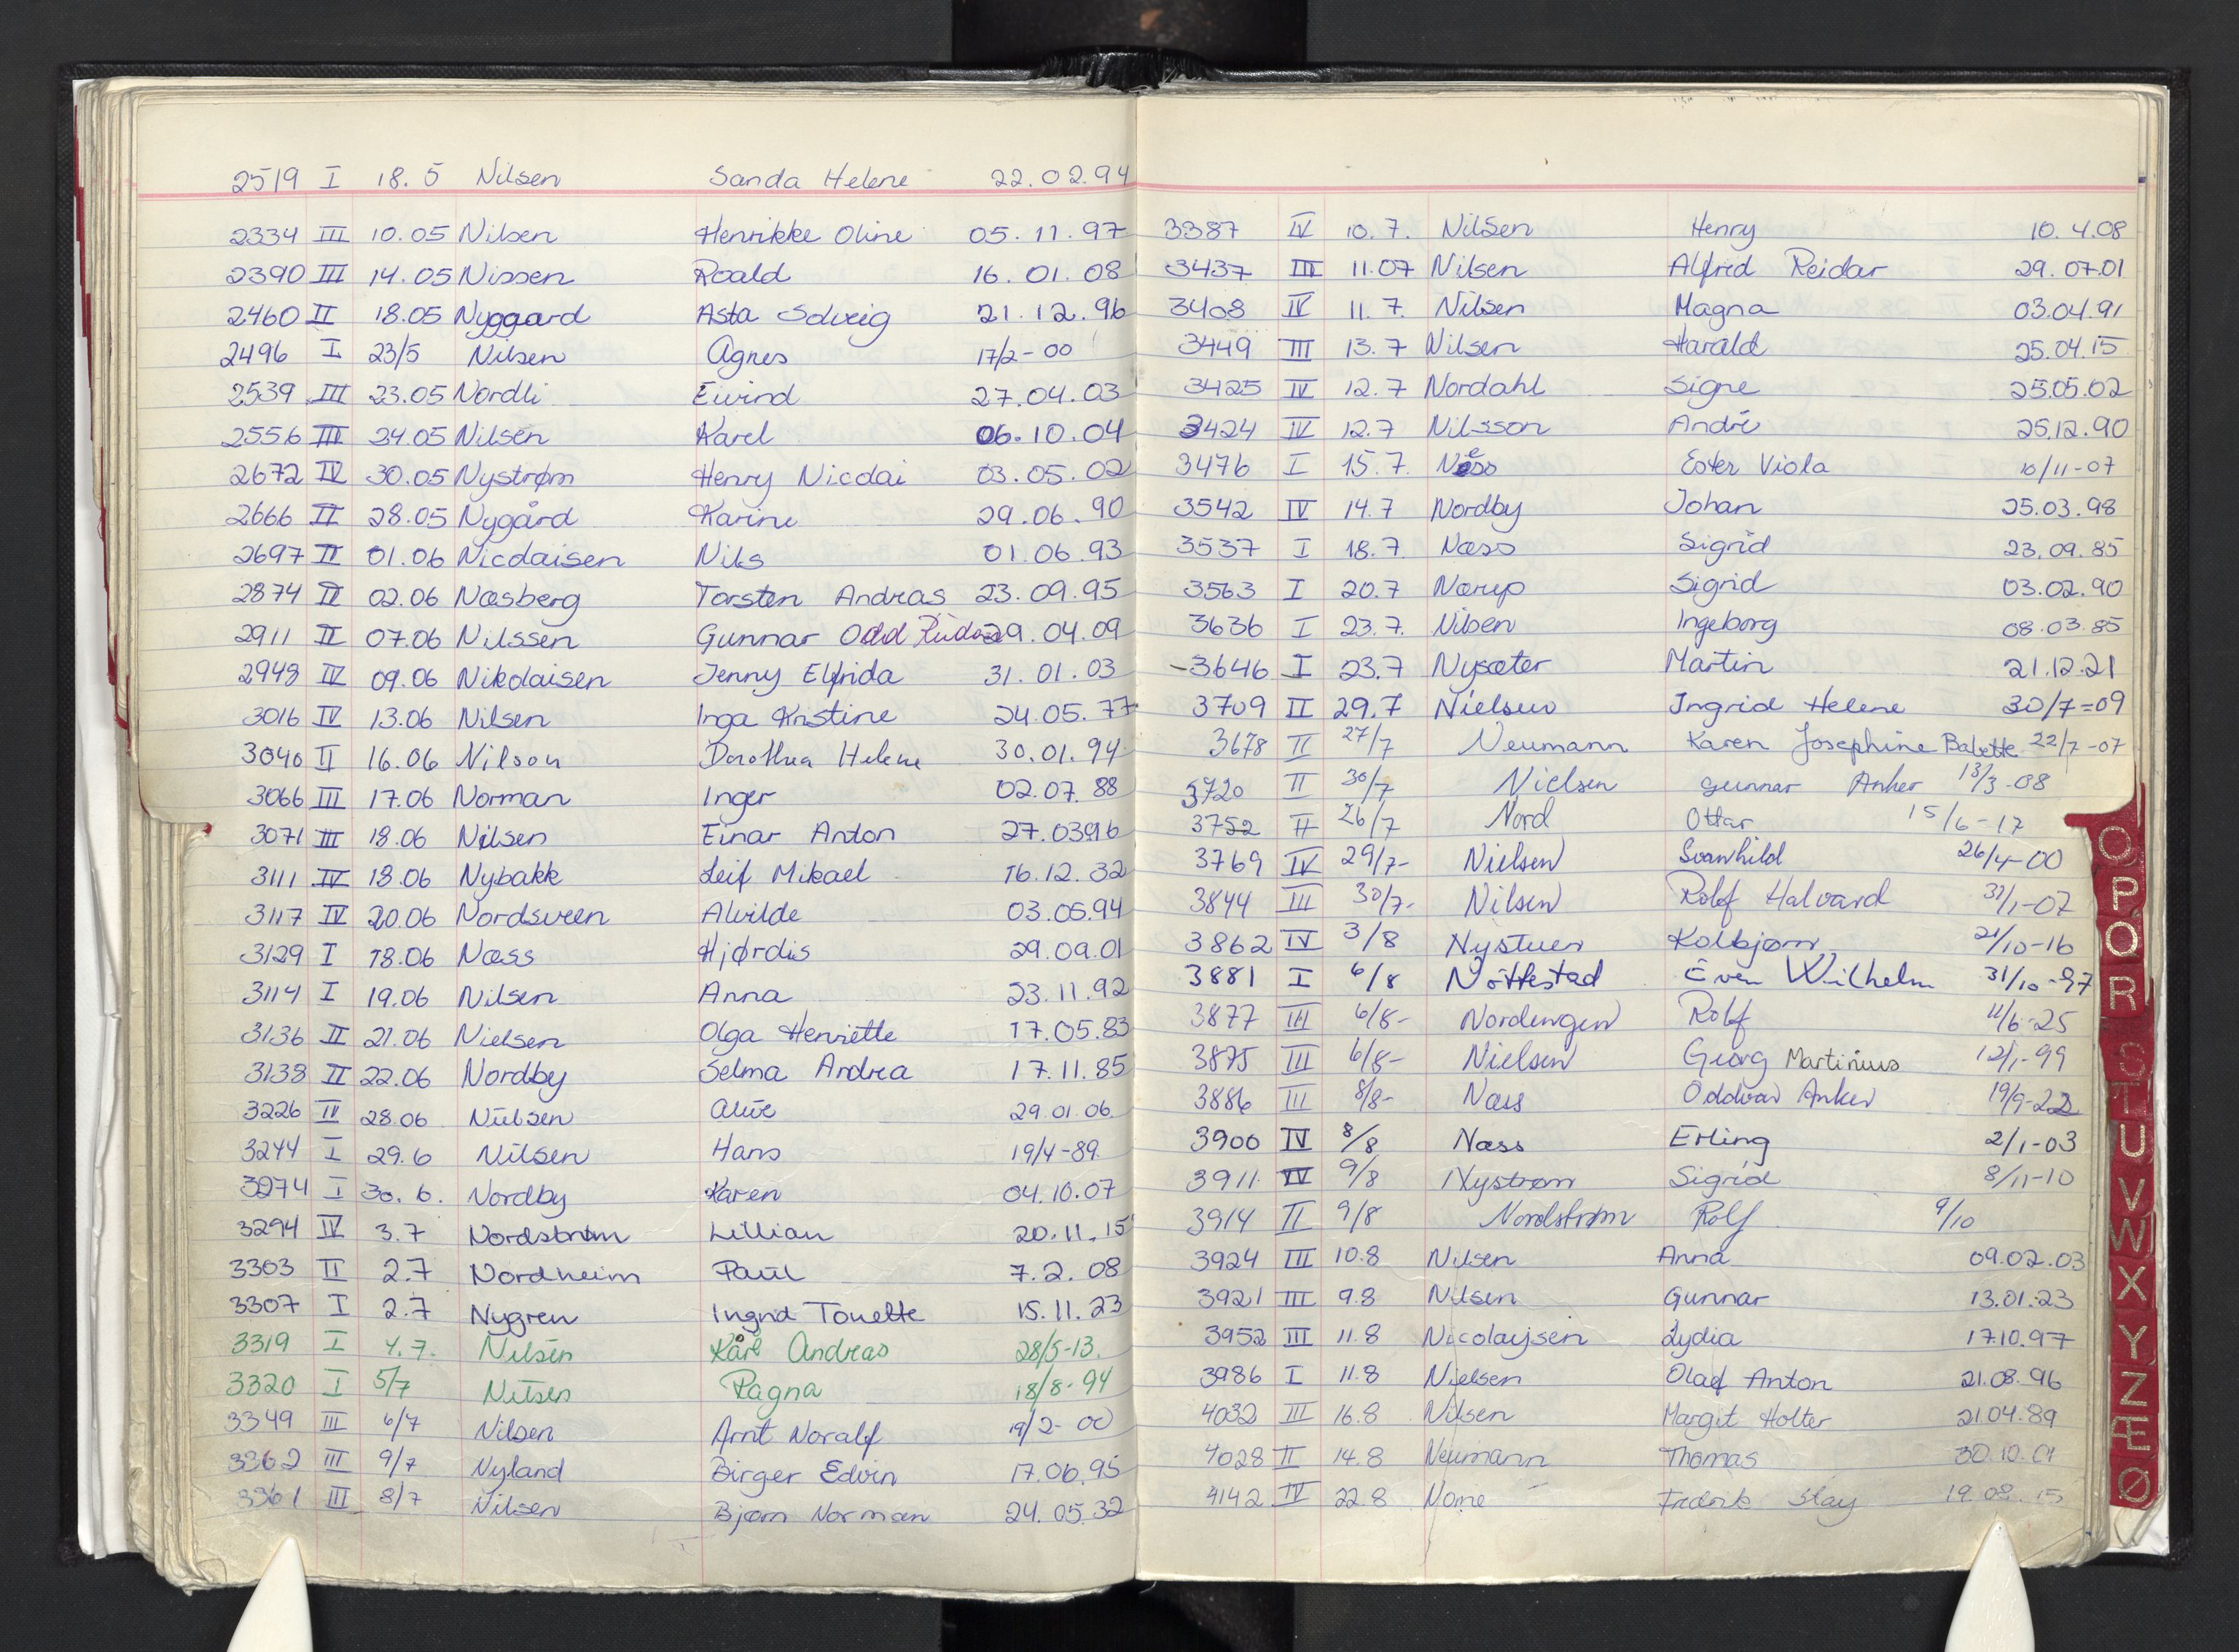 2519 I 18.5 Nilsen Sanda Helene 22.02.94
2334 III 10.05 Nilsen Henrikke Oline 05.11.97
2390 III 14.05 Nissen Roald 16.01.08
2460 II 18.05 Nyggard Asta Solveig 21.12.96
2496 I 23/5 Nilsen Agnes 17/2-00
2539 III 23.05 Nordli Eivind 27.04.03
2556 III 24.05 Nilsen Karel 06.10.04
2672 IV 30.05 Nystrøm Henry Nicolai 03.05.02
2666 II 28.05 Nygård Karine 29.06.90
2697 II 01.06 Nicolaisen Nils 01.06.93
2874 II 02.06 Næsberg Torsten Andreas 23.09.95
2911 II 07.06 Nilssen Gunnar Odd 29.04.09
2948 IV 09.06 Nikolaisen Jenny Elfrida 31.01.03
3016 IV 13.06 Nilsen Inga Kristine 24.05.77
3040 II 16.06 Nilson Dorothea Helene 30.01.94
3066 III 17.06 Norman Inger 02.07.88
3071 III 18.06 Nilsen Einar Anton 27.03.96
3111 IV 18.06 Nybakk Leif Mikael 16.12.32
3117 IV 20.06 Nordsveen Alvilde 03.05.94
3129 I 18.06 Næss Hjørdis 29.09.01
3114 I 19.06 Nilsen Anna 23.11.92
3136 II 21.06 Nielsen Olga Henriette 17.05.83
3138 II 22.06 Nordby Selma Andrea 17.11.85
3226 IV 28.06 Nielsen Alise 29.01.06
3244 I 29.6 Nilsen Hans 19/4-89
3274 I 30.6. Nordby Karen 04.10.07
3294 IV 3.7 Nordstrøm Lillian 20.11.15
3303 II 2.7 Nordheim Paul 7.2.08
3307 I 2.7 Nygren Ingrid Tonette 15.11.23
3319 I 4.7. Nilsen Kåre Andreas 28/5-13.
3320 I 5/7 Nilsen Ragna 18/8-94
3349 III 6/7 Nilsen Arnt Noralf 19/2-00
3362 III 9/7 Nyland Birger Edvin 17.06.95
3361 III 8/7 Nilsen Bjørn Norman 24.05.32
3387 IV 10.7. Nilsen Henry 10.4.08
3437 III 11.07 Nilsen Alfred Reidar 29.07.01
3408 IV 11.7. Nilsen Magna 03.04.91
3449 III 13.7 Nilsen Harald 25.04.15
3425 IV 12.7 Nordahl Signe 25.05.02
3424 IV 12.7 Nilsson André 25.12.90
3476 I 15.7. Næss Ester Viola 10/11-07
3542 IV 14.7 Nordby Johan 25.03.98
3537 I 18.7. Næss Sigrid 23.09.85
3563 I 20.7 Nærup Sigrid 03.02.90
3636 I 23.7. Nilsen Ingeborg 08.03.85
-3646 I 23.7 Nysæter Martin 21.12.21
3709 II 29.7 Nielsen Ingrid Helene 30/7=09
3678 II 27/7 Neumann Karen Josephine Babette 22/7-07
3720 II 30/7 Nielsen Gunnar Anker 13/3-08
3752 II 26/7 Nord Ottar 15/6-17
3769 IV 29/7- Nielsen Svanhild 26/4-00
3844 III 30/7- Nilsen Rolf Halvard 31/1-07
3862 IV 3/8 Nystuen Kolbjørn 21/10-16
3881 I 6/8 Nøttestad Even Wilhelm 31/10-97
3877 III 6/8- Nordengen Rolf 11/6-25
3875 III 6/8- Nielsen Georg Martinius 12/1-99
3886 III 8/8- Næss Oddvar Anker 19/9-22
3900 IV 8/8 Næss Erling 2/1-03
3911 IV 9/8 Nystrøm Sigrid 8/11-10
3914 II 9/8 Nordstrøm Rolf 9/10
3924 III 10.8 Nilsen Anna 09.02.03
3921 III 9.8 Nilsen Gunnar 13.01.23
3952 III 11.8 Nicolaysen Lydia 17.10.97
3986 I 11.8 Nielsen Olaf Anton 21.08.96
4032 III 16.8 Nilsen Margit Holter 21.04.89
4028 II 14.8 Neumann Thomas 30.10.01
4142 IV 22.8 Nome Fredrik Slay 19.08.15
O
P
Q
R
S
T
U
V
W
X
Y
Z
Æ
Ø